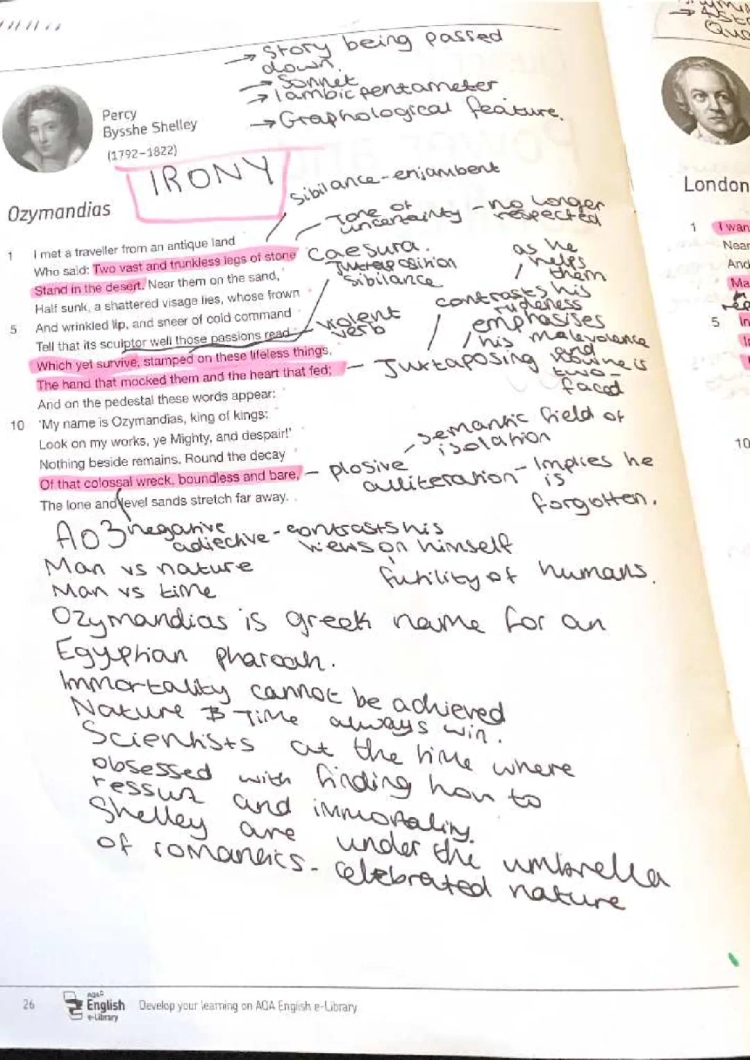 → Story being passed
down.
→ Sonnet
→ Iambic pentameter
→ Graphological feature.
Percy
Bysshe Shelley
(1792–1822)
IRONY
Sibilance - enjambent
Tone of
uncertainty - no longer
respected
Ozymandias
1 I met a traveller from an antique land
Who said: Two vast and trunkless legs of stone
Caesura.
Stand in the desert. Near them on the sand,
Juxtaposition
Sibilance
Half sunk, a shattered visage lies, whose frown
5 And wrinkled lip, and sneer of cold command
Tell that its sculptor well those passions read
violent
verb
Which yet survive, stamped on these lifeless things,
The hand that mocked them and the heart that fed;
as he
helps
them
contrasts his
rudeness
emphasises
his malevolence
and
Juxtaposing
two-
faced
And on the pedestal these words appear:
10 'My name is Ozymandias, king of kings:
Look on my works, ye Mighty, and despair!'
Nothing beside remains. Round the decay
Of that colossal wreck, boundless and bare,
semantic field of
isolation
plosive
alliteration - Implies he
is
forgotten.
The lone and level sands stretch far away.
AO3
negative
adjective - contrasts his
views on himself
Man vs nature
futility of humans.
Man vs time
Ozymandias is greek name for an
Egyptian pharoah.
Immortality cannot be achieved
Nature & Time always win.
Scientists at the time where
obsessed with finding how to
and immortality.
Shelley are under the umbrella
of romantics - celebrated nature
26
AQA
English
e-Library
Develop your learning on AQA English e-Library
London
1 I wan
Near
And
Ma
5 In
10